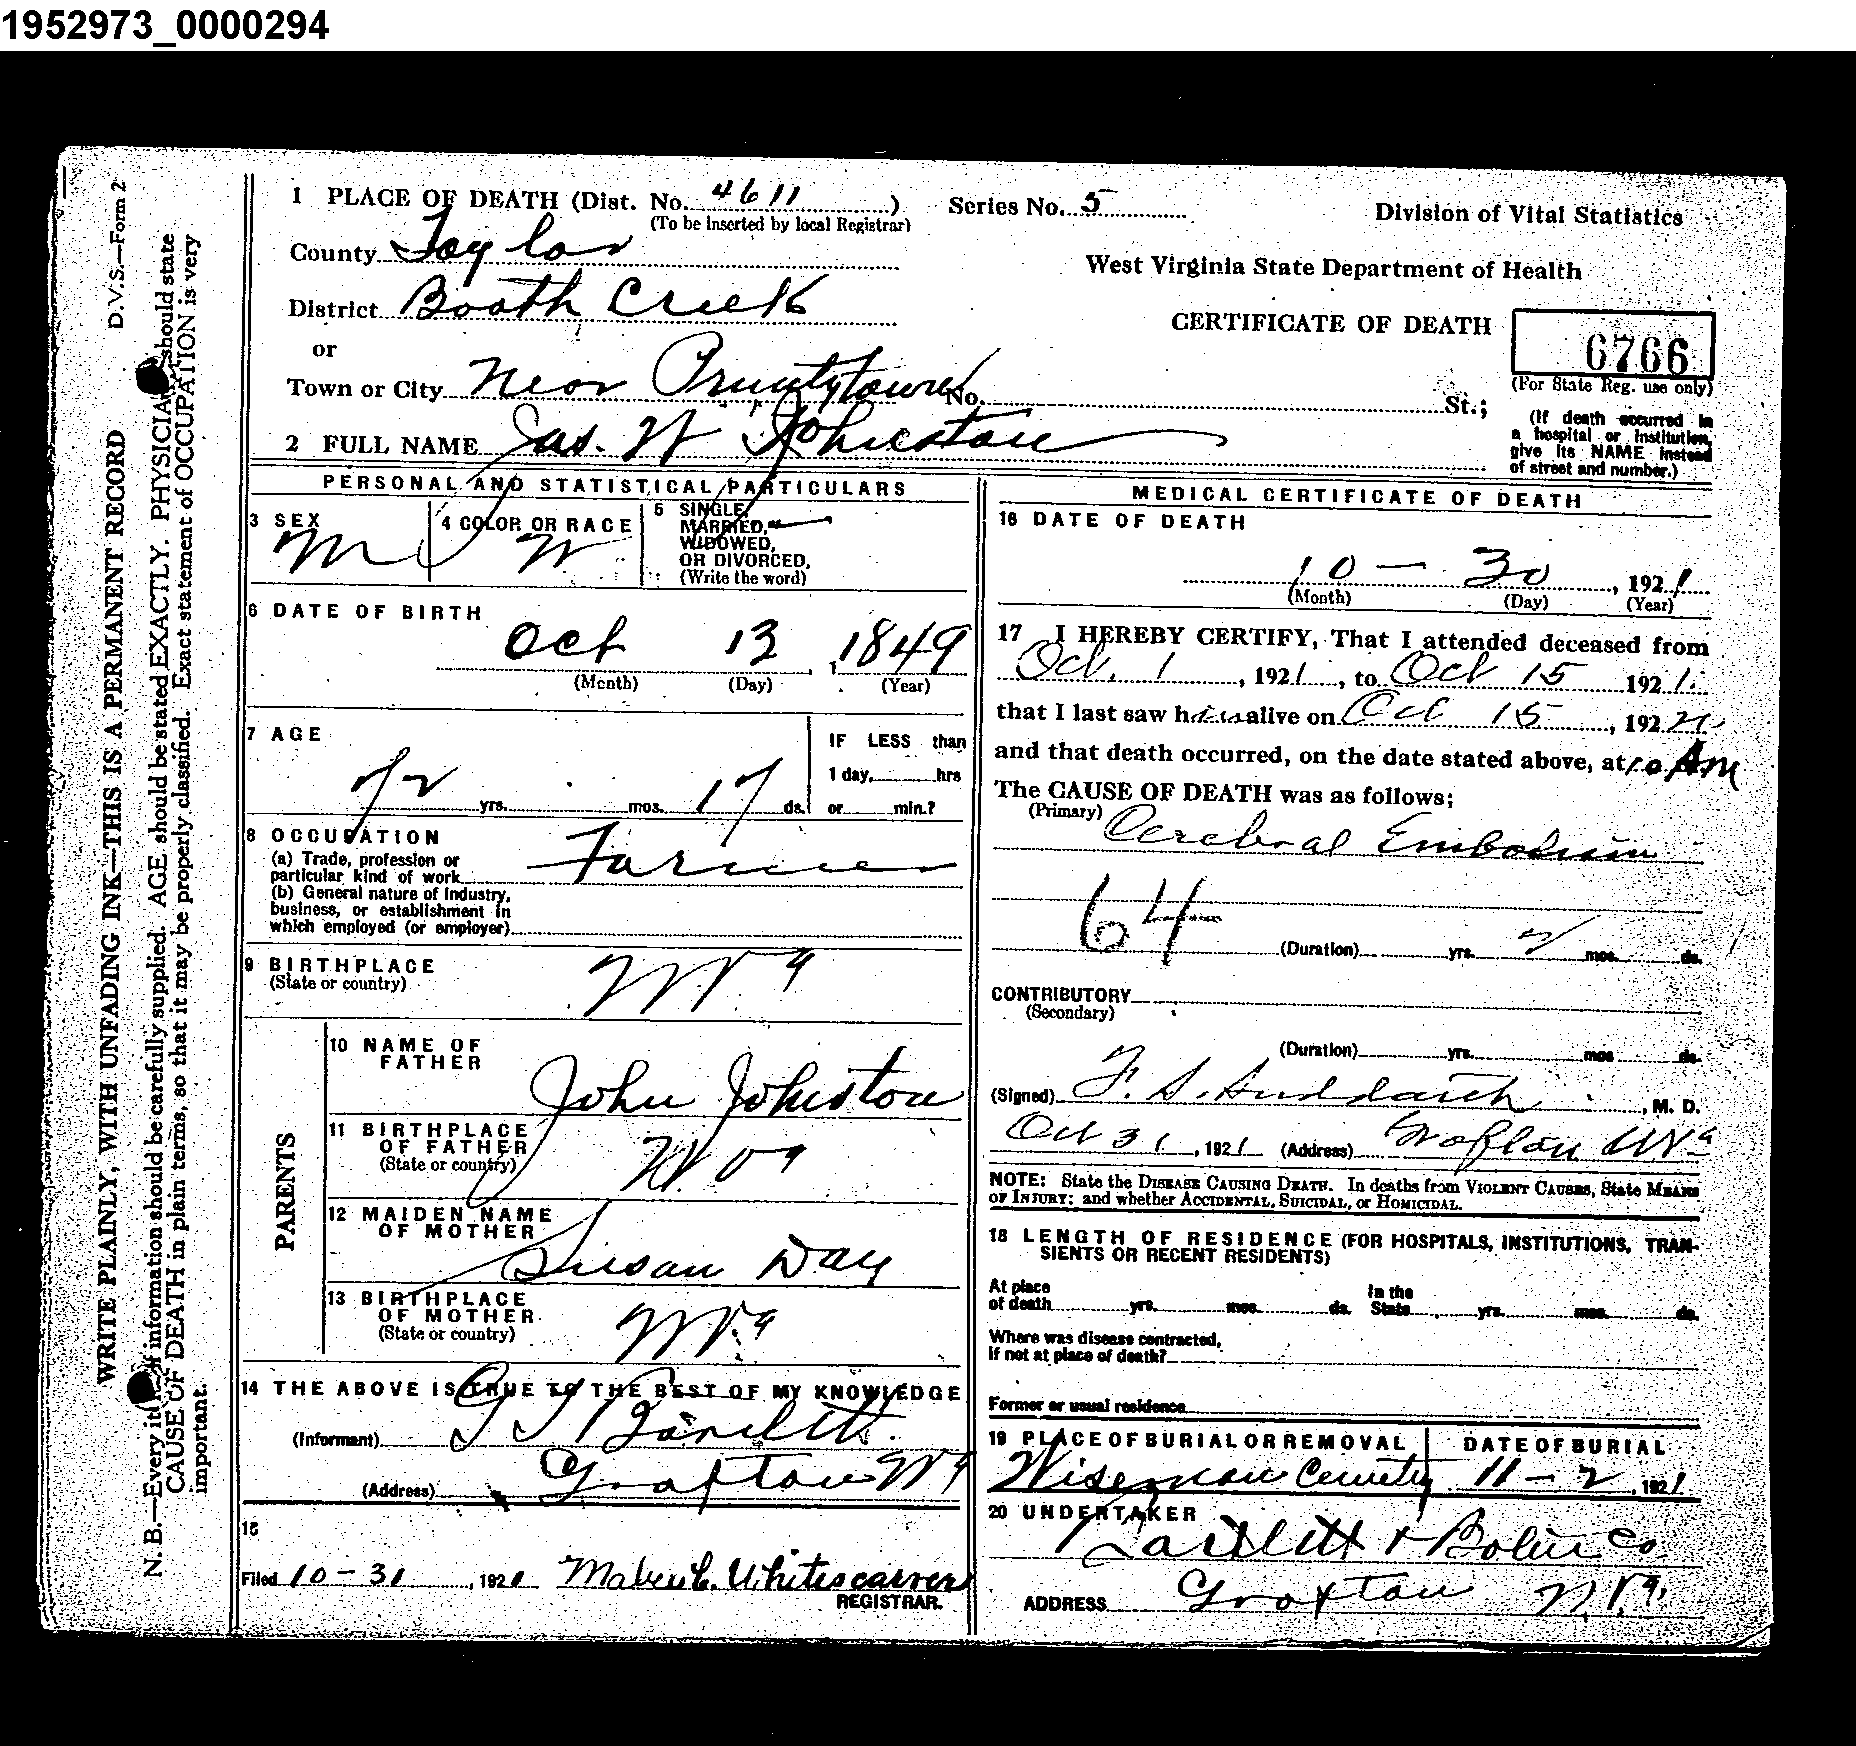 1952973_0000294
D.V.S.—Form 2
WRITE PLAINLY, WITH UNFADING INK—THIS IS A PERMANENT RECORD
N. B.—Every item of information should be carefully supplied. AGE should be stated EXACTLY. PHYSICIANS should state
CAUSE OF DEATH in plain terms, so that it may be properly classified. Exact statement of OCCUPATION is very
important.
1 PLACE OF DEATH (Dist. No. 4611 )
(To be inserted by local Registrar)
Series No. 5
Division of Vital Statistics
County Taylor
West Virginia State Department of Health
District Booth Creek
CERTIFICATE OF DEATH
6766
(For State Reg. use only)
or
Town or City Near Pruntytown No. St.;
(If death occurred in
a hospital or institution,
give its NAME instead
of street and number.)
2 FULL NAME Jas. W Johnston
PERSONAL AND STATISTICAL PARTICULARS
3 SEX
M
4 COLOR OR RACE
W
5 SINGLE,
MARRIED,
WIDOWED,
OR DIVORCED,
(Write the word)
6 DATE OF BIRTH
Oct 13, 1849
(Month) (Day) (Year)
7 AGE
72 yrs. mos. 17 ds.
IF LESS than
1 day, hrs
or min.?
8 OCCUPATION
(a) Trade, profession or
particular kind of work Farmer
(b) General nature of Industry,
business, or establishment in
which employed (or employer)
9 BIRTHPLACE
(State or country)
W Va
PARENTS
10 NAME OF
FATHER
John Johnston
11 BIRTHPLACE
OF FATHER
(State or country)
W Va
12 MAIDEN NAME
OF MOTHER
Susan Day
13 BIRTHPLACE
OF MOTHER
(State or country)
W Va
14 THE ABOVE IS TRUE TO THE BEST OF MY KNOWLEDGE
(Informant) Bartlett
(Address) Grafton W Va
15
Filed 10-31, 1921 Whitescarver
REGISTRAR.
MEDICAL CERTIFICATE OF DEATH
16 DATE OF DEATH
10 - 30, 1921
(Month) (Day) (Year)
17 I HEREBY CERTIFY, That I attended deceased from
Oct. 1, 1921, to Oct 15 1921.
that I last saw him alive on Oct 15, 192
and that death occurred, on the date stated above, at 10 AM
The CAUSE OF DEATH was as follows;
(Primary) Cerebral Embolism
64
(Duration) yrs. mos. ds.
CONTRIBUTORY
(Secondary)
(Duration) yrs. mos ds.
(Signed) F. S. Suddarth, M. D.
Oct 31, 1921 (Address) Grafton W Va
NOTE: State the DISEASE CAUSING DEATH. In deaths from VIOLENT CAUSES, State MEANS
OF INJURY; and whether ACCIDENTAL, SUICIDAL, or HOMICIDAL.
18 LENGTH OF RESIDENCE (FOR HOSPITALS, INSTITUTIONS, TRAN-
SIENTS OR RECENT RESIDENTS)
At place
of death yrs. mos. ds.
In the
State yrs. mos. ds.
Where was disease contracted,
if not at place of death?
Former or usual residence
19 PLACE OF BURIAL OR REMOVAL
Wiseman Cemetery
DATE OF BURIAL
11-2, 1921
20 UNDERTAKER
Bartlett + Bolin Co
ADDRESS Grafton W. Va.